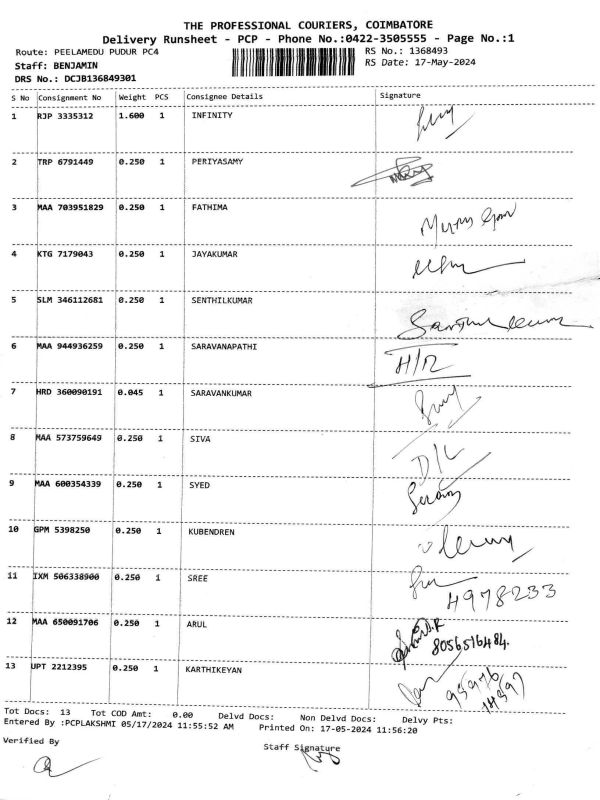 THE PROFESSIONAL COURIERS, COIMBATORE
Delivery Runsheet - PCP - Phone No.:0422-3505555 - Page No.:1
Route: PEELAMEDU PUDUR PC4 RS No.: 1368493
Staff: BENJAMIN RS Date: 17-May-2024
DRS No.: DCJB136849301
S No Consignment No Weight PCS Consignee Details Signature
1 RJP 3335312 1.600 1 INFINITY
2 TRP 6791449 0.250 1 PERIYASAMY
3 MAA 703951829 0.250 1 FATHIMA
4 KTG 7179043 0.250 1 JAYAKUMAR
5 SLM 346112681 0.250 1 SENTHILKUMAR
6 MAA 944936259 0.250 1 SARAVANAPATHI
7 HRD 360090191 0.045 1 SARAVANKUMAR
8 MAA 573759649 0.250 1 SIVA
D/L
9 MAA 600354339 0.250 1 SYED
10 GPM 5398250 0.250 1 KUBENDREN
11 IXM 506338900 0.250 1 SREE
4978233
12 MAA 650091706 0.250 1 ARUL
8056516484.
13 UPT 2212395 0.250 1 KARTHIKEYAN
Tot Docs: 13 Tot COD Amt: 0.00 Delvd Docs: Non Delvd Docs: Delvy Pts:
Entered By :PCPLAKSHMI 05/17/2024 11:55:52 AM Printed On: 17-05-2024 11:56:20
Verified By Staff Signature